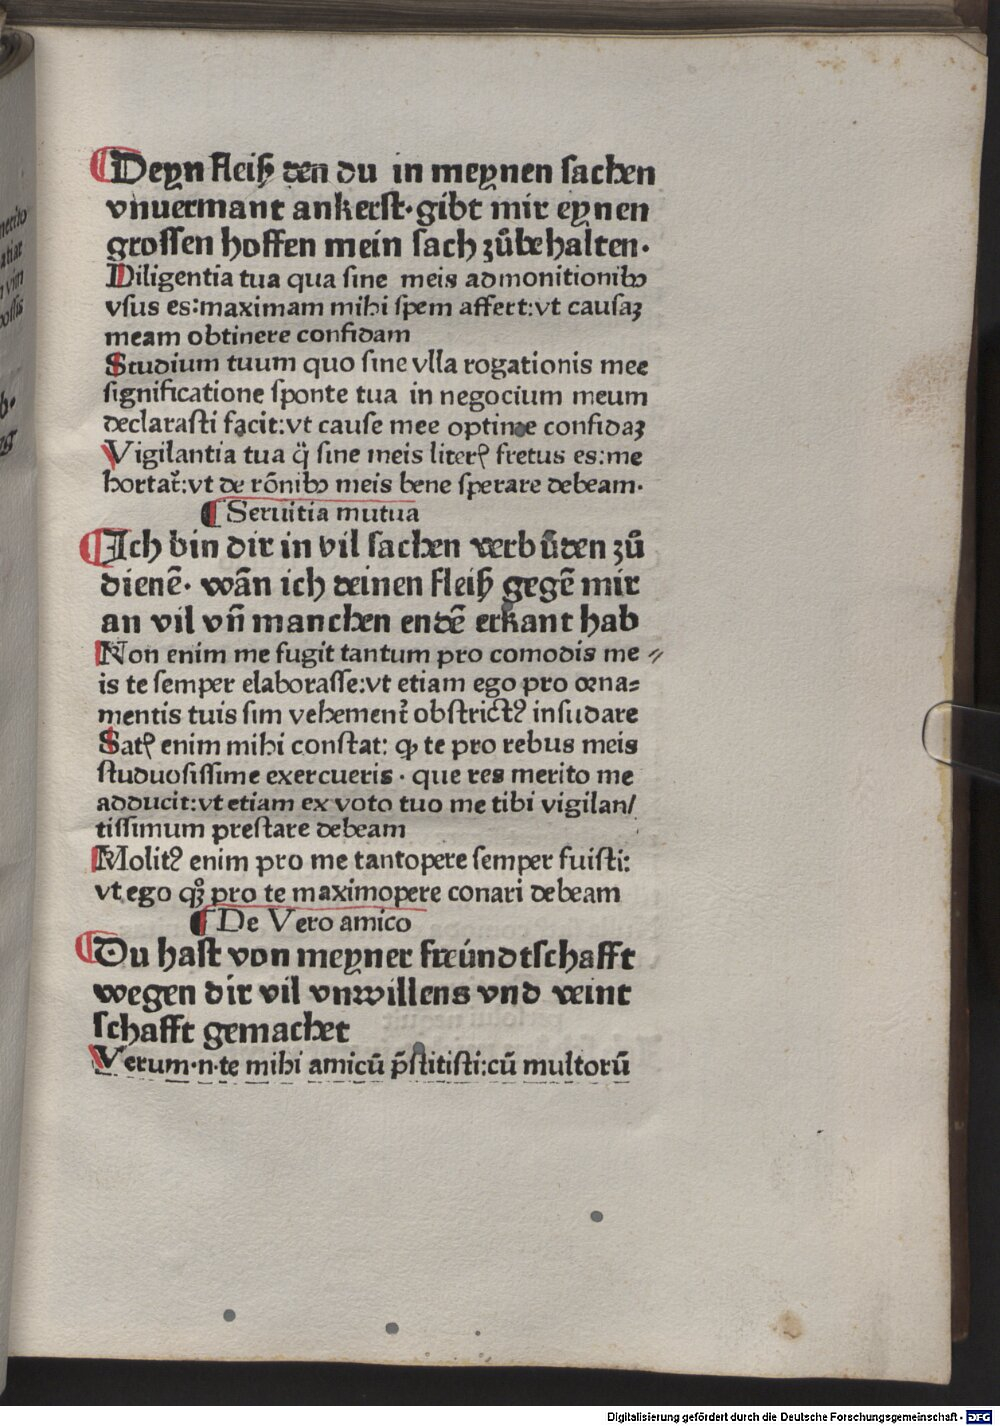 Deyn fleiß den du in meynen sachen
vnuermant ankerst·gibt mir eynen
grossen hoffen mein sach zůbehalten·
Diligentia tua qua sine meis admonitionibꝫ
vsus es:maximam mihi spem affert:vt causaꝫ
meam obtinere confidam
Studium tuum quo sine vlla rogationis mee
significatione sponte tua in negocium meum
declarasti facit:vt cause mee optime confidaꝫ
Vigilantia tua q̈ sine meis literꝭ fretus es:me
hortat᷑:vt de rōnibꝫ meis bene sperare debeam·
⸿ Seruitia mutua
⸿Ich bin dir in vil sachen verbūden zů
dienē· wān ich deinen fleiß gegē mir
an vil vñ manchen endē erkant hab
Non enim me fugit tantum pro comodis me⸗
is te semper elaborasse:vt etiam ego pro orna⸗
mentis tuis sim vehement᷑ obstrictꝰ insudare
Satꝭ enim mihi constat: ꝙ te pro rebus meis
studuosissime exercueris · que res merito me
adducit:vt etiam ex voto tuo me tibi vigilan/
tissimum prestare debeam
Molitꝰ enim pro me tantopere semper fuisti:
vt ego qꝫ pro te maximopere conari debeam
⸿ De Vero amico
⸿Du hast von meyner freúndtschafft
wegen dir vil vnwillens vnd veint
schafft gemachet
Verum·n·te mihi amicū p̄stitisti:cū multorū
merito
atiar
vim
possis
b·
Digitalisierung gefördert durch die Deutsche Forschungsgemeinschaft - DFG